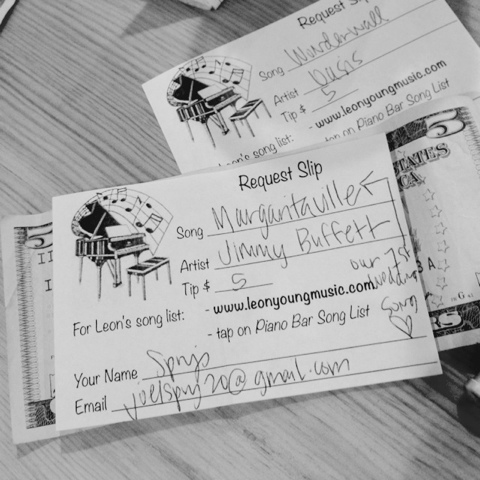 Request Slip
Song Wonderwall
Artist Oasis
Tip $ 5
- www.leonyoungmusic.com
Leon's song list:
- tap on Piano Bar Song List
5
STATES
CA
Request Slip
Song Margaritaville
Artist Jimmy Buffett
Tip $ 5
our 1st
wedding
song
- www.leonyoungmusic.com
For Leon's song list:
- tap on Piano Bar Song List
Your Name
Email
5